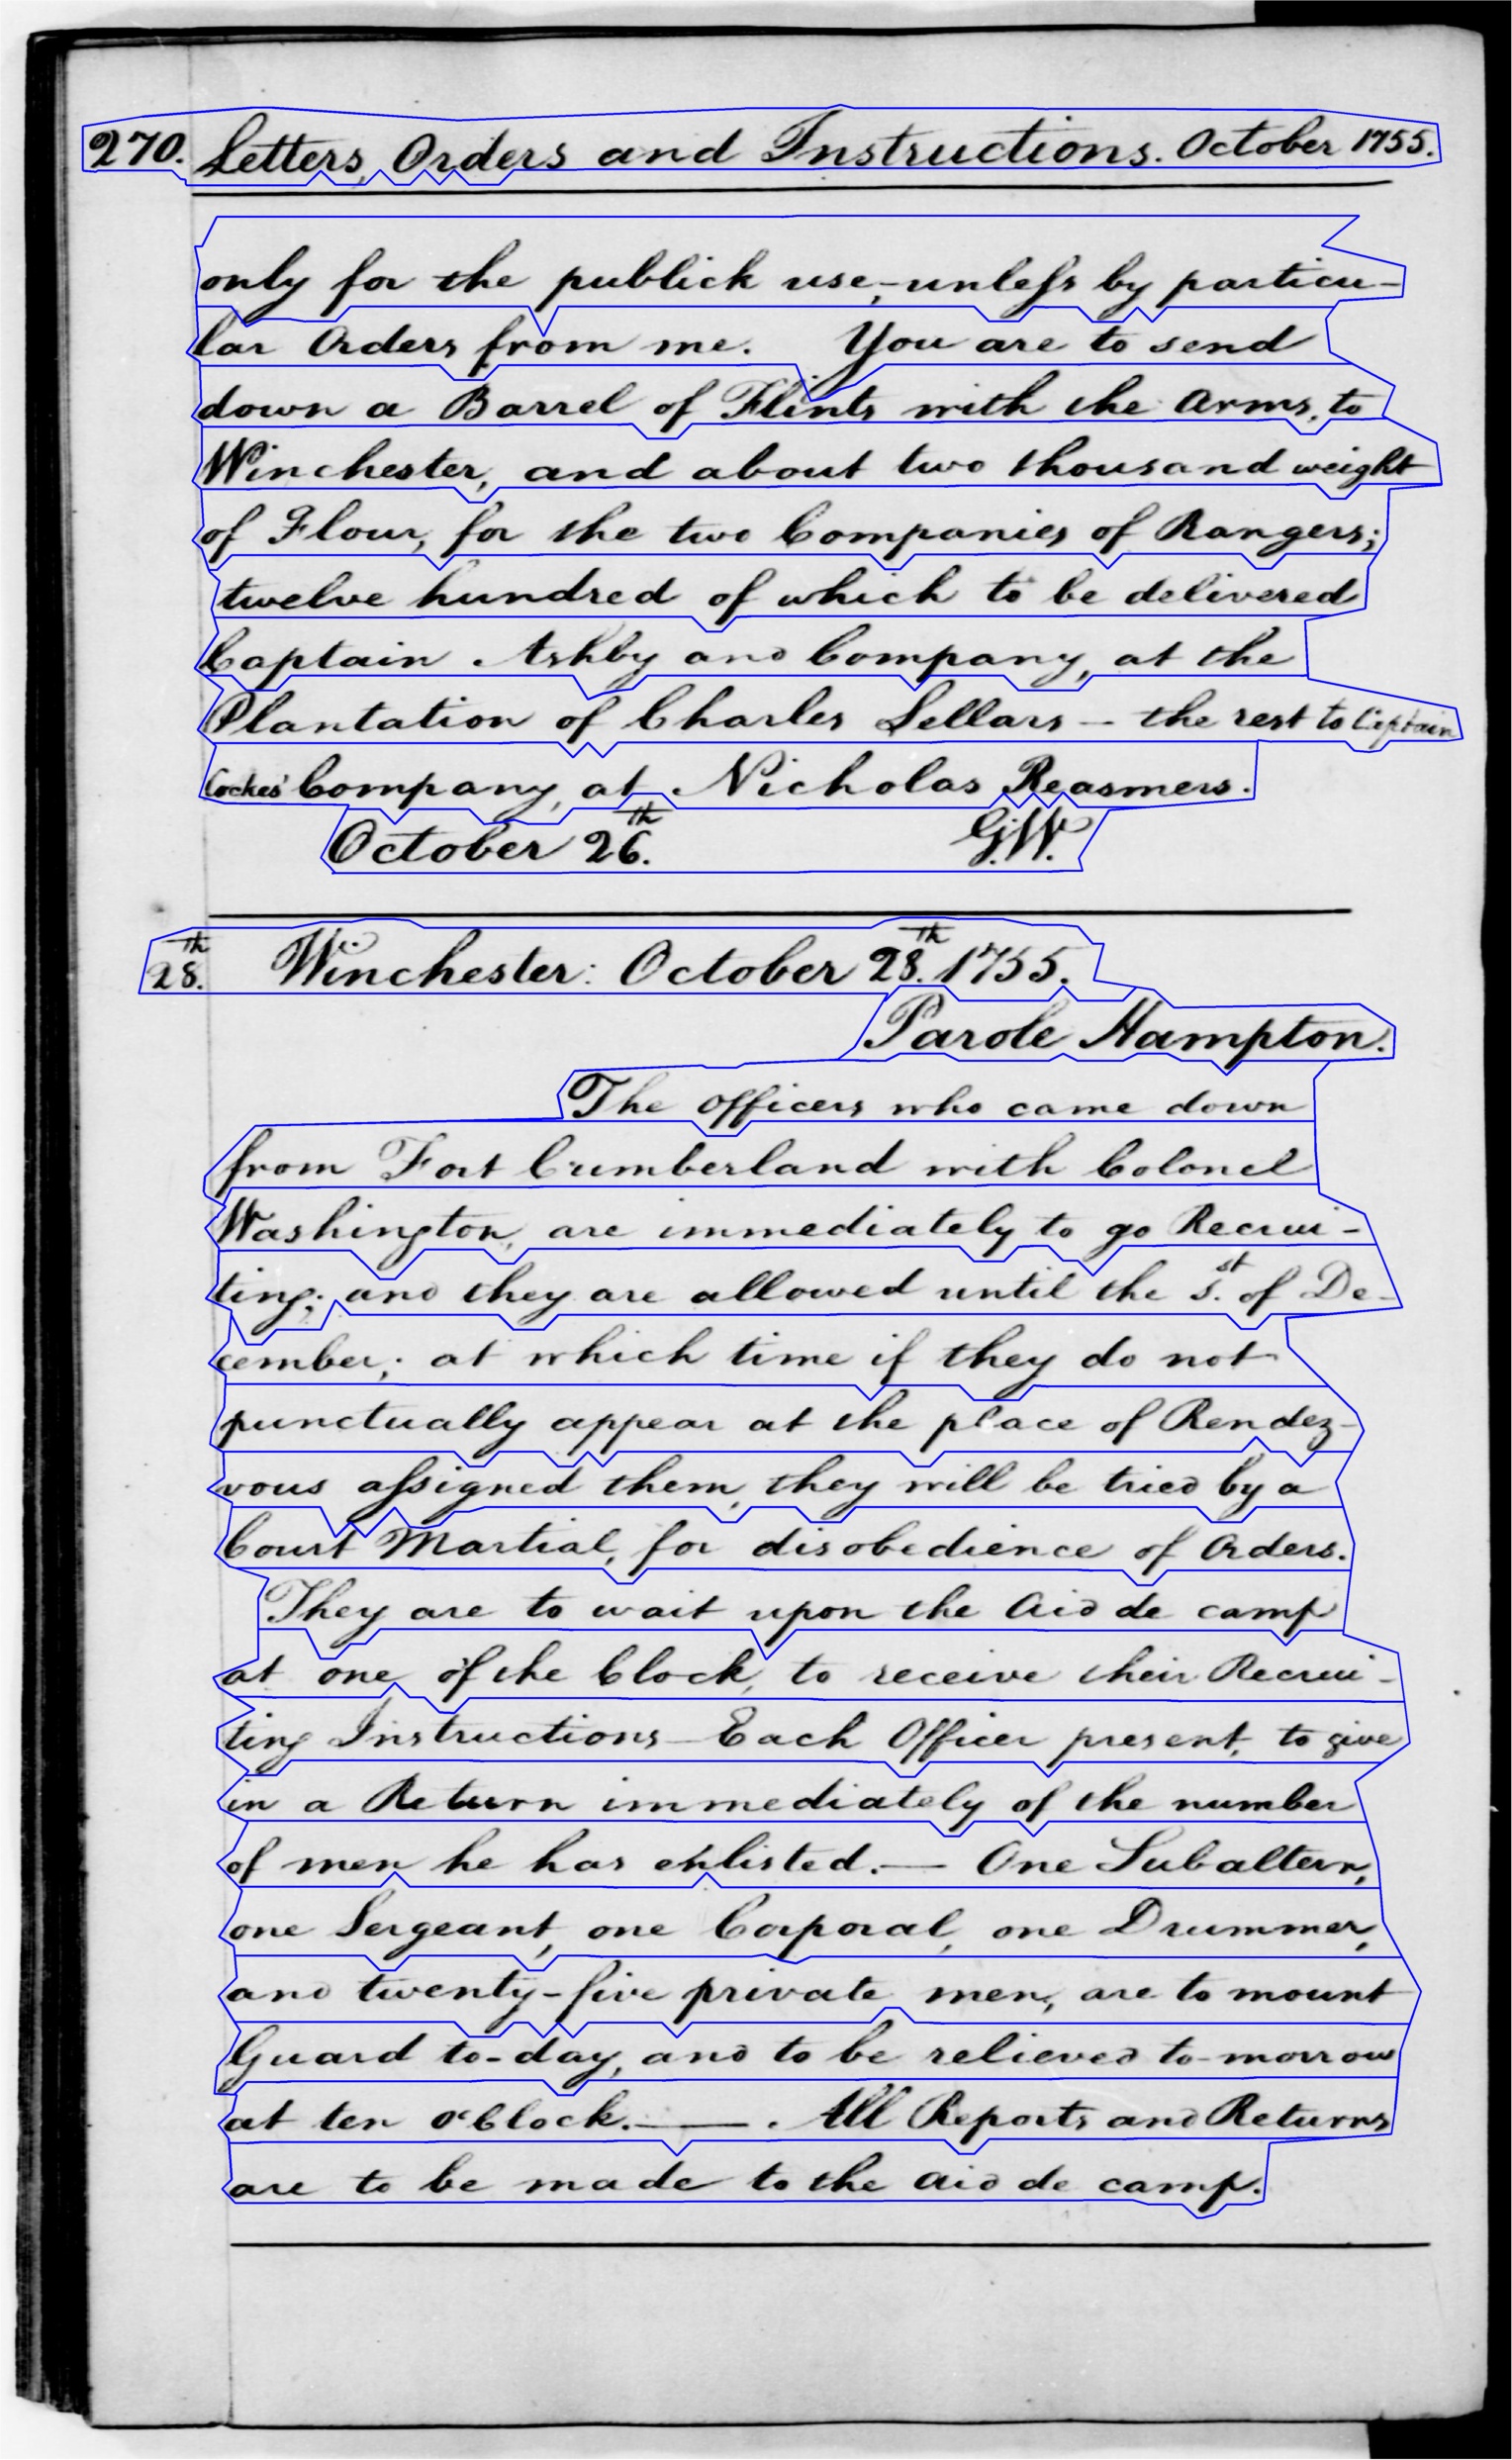 270. Letters, Orders and Instructions. October 1755.
only for the publick use,-unless by particu-
lar Orders from me. You are to send
down a Barrel of Flints with the Arms, to
Winchester, and about two thousand weight
of Flour, for the two Companies of Rangers;
twelve hundred of which to be delivered
Captain Ashby and Company, at the
Plantation of Charles Sellars - the rest to Captain
Cockes' Company, at Nicholas Reasmers.
October 26.th G.W.
28.th Winchester: October 28.th 1755.
Parole Hampton.
The Officers who came down
from Fort Cumberland with Colonel
Washington, are immediately to go Recrui-
ting; and they are allowed until the 1.st of De-
cember; at which time if they do not
punctually appear at the place of Rendez-
vous assigned them, they will be tried by a
Court Martial, for disobedience of Orders.
They are to wait upon the Aid de camp
at one of the Clock, to receive their Recrui-
ting Instructions - Each Officer present, to give
in a Return immediately of the number
of men he has enlisted. — One Subaltern,
one Sergeant, one Corporal, one Drummer,
and twenty-five private men, are to mount
Guard to-day, and to be relieved to-morrow
at ten o'Clock. — . All Reports and Returns
are to be made to the Aid de camp.